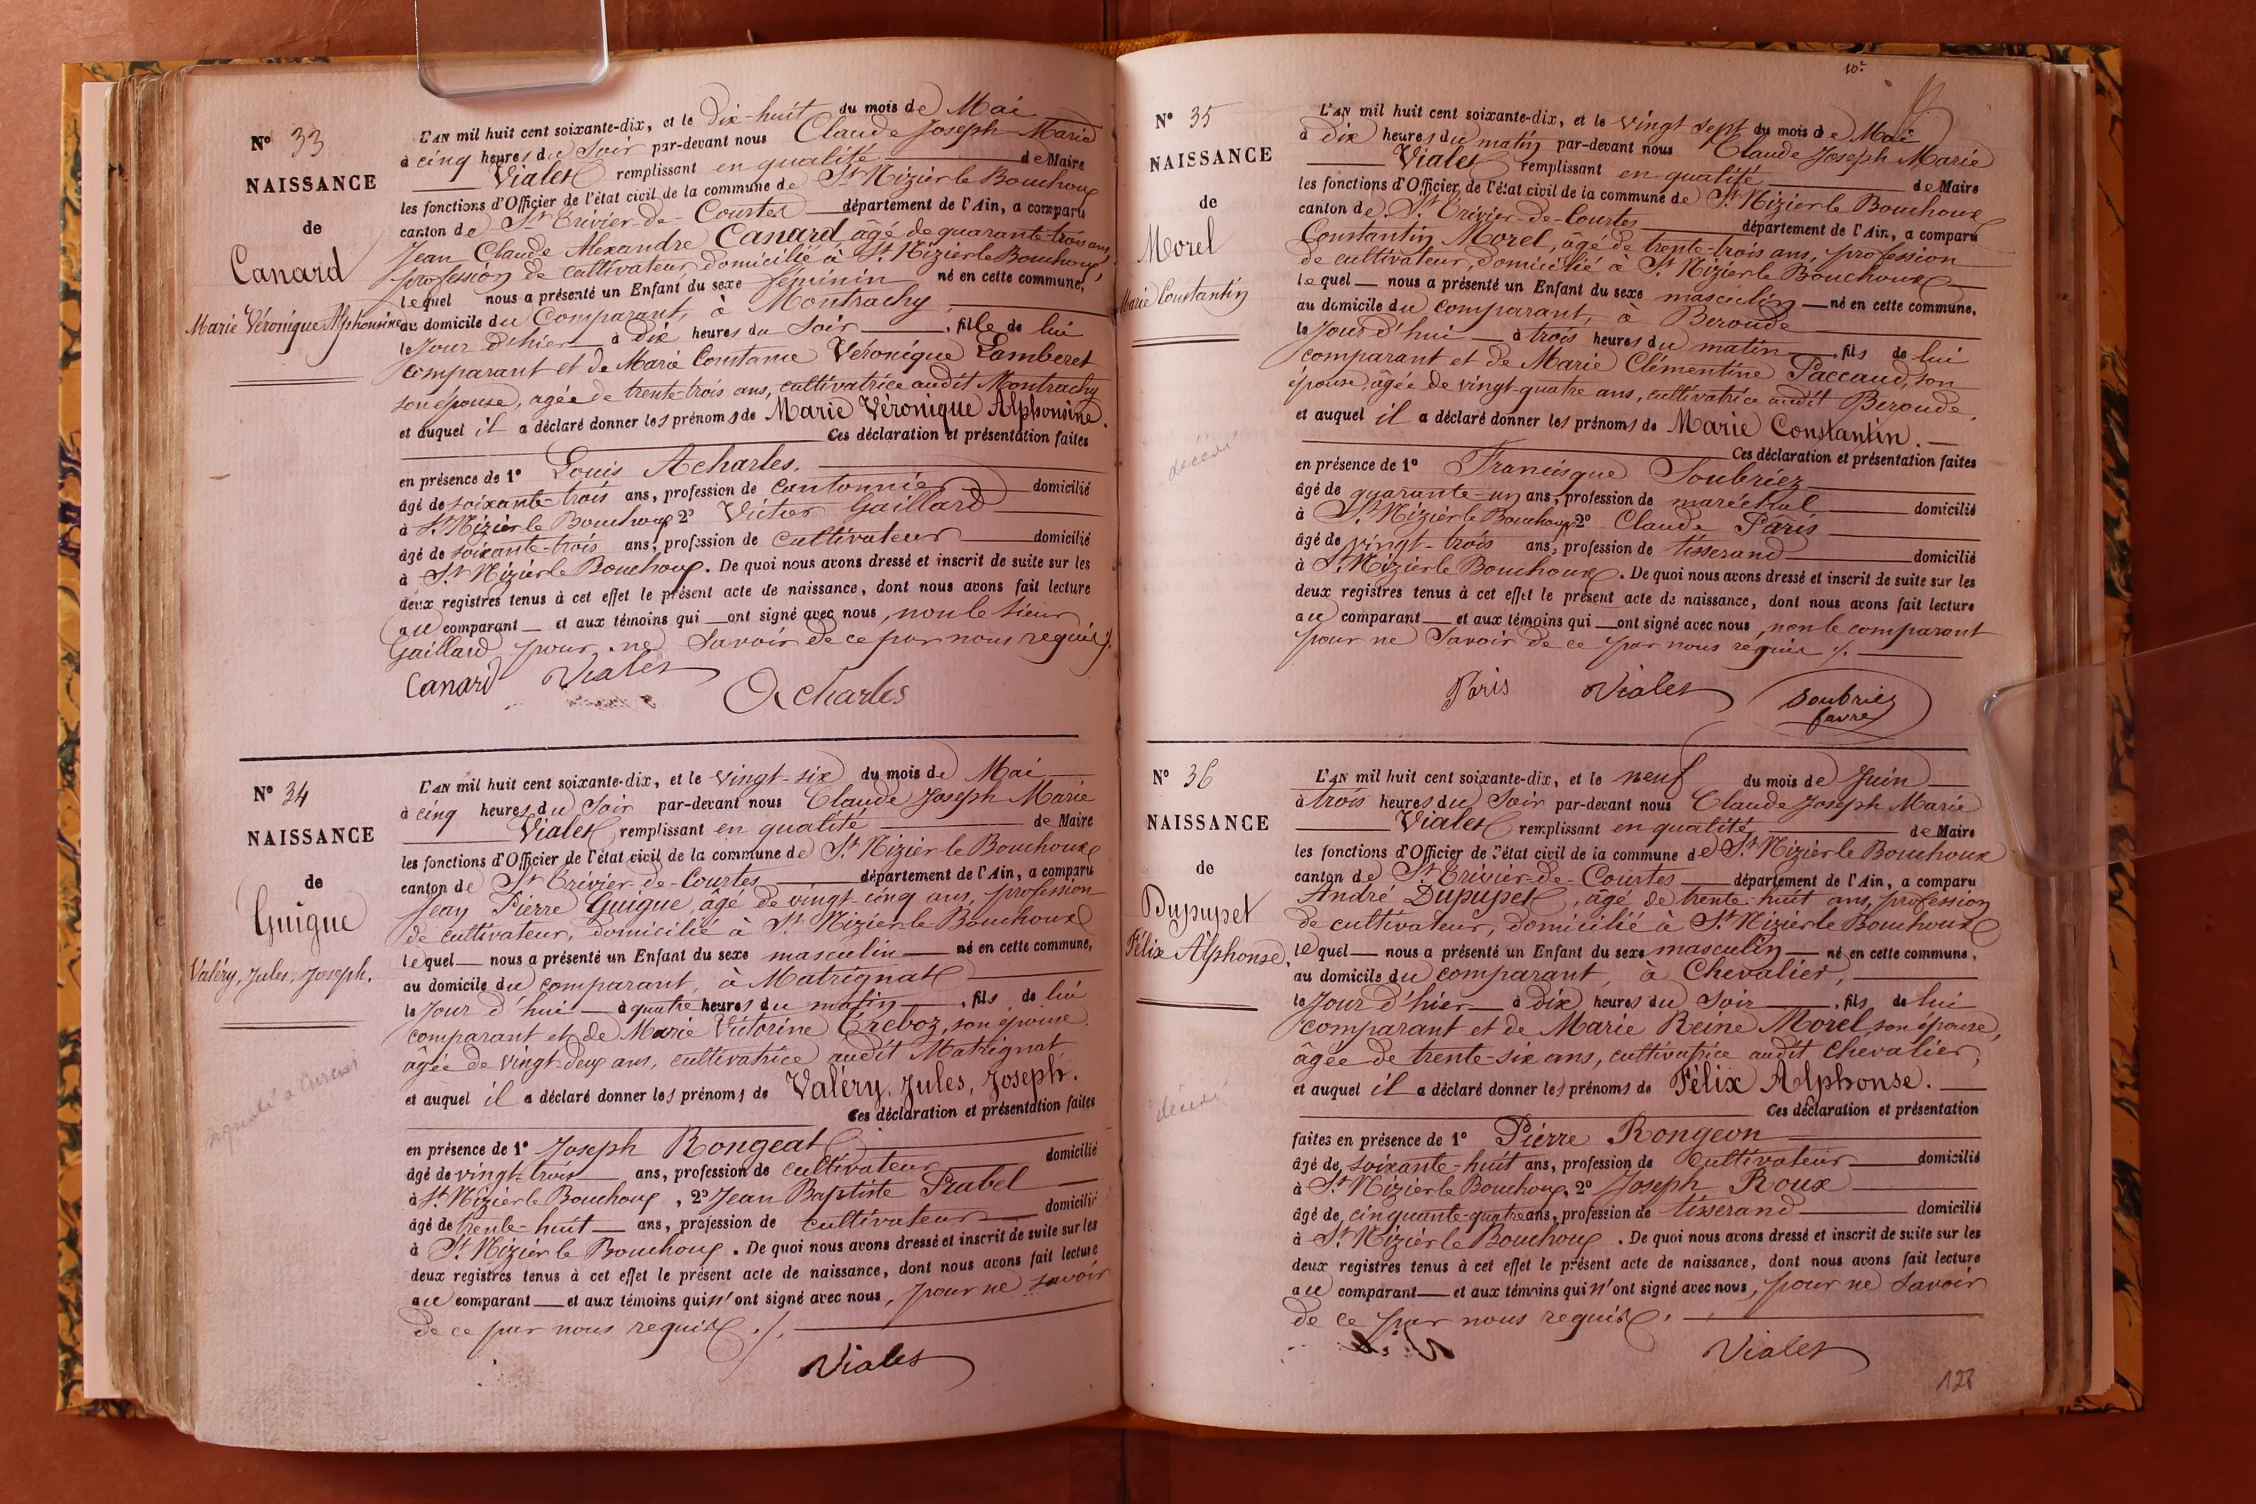 N° 33
NAISSANCE
de
Canard
Marie Véronique Alphonsine
L'AN mil huit cent soixante-dix, et le dix-huit du mois de Mai
à cinq heures du soir par-devant nous Claude Joseph Marie
Vialet remplissant en qualité de Maire
les fonctions d'Officier de l'état civil de la commune de St Nizier le Bouchoux
canton de St Trivier-de-Courtes département de l'Ain, a comparu
Jean Claude Alexandre Canard, âgé de quarante-trois ans,
profession de cultivateur, domicilié à St Nizier le Bouchoux,
lequel nous a présenté un Enfant du sexe féminin né en cette commune,
au domicile du Comparant, à Montrachy
le Jour d'hier à dix heures du Soir, fille de lui
comparant et de Marie Constance Véronique Lamberet
son épouse, agée de trente-trois ans, cultivatrice audit Montrachy
et auquel il a déclaré donner les prénoms de Marie Véronique Alphonsine.
Ces déclaration et présentation faites
en présence de 1° Louis Acharles.
âgé de soixante-trois ans, profession de cantonnier domicilié
à St Nizier le Bouchoux 2° Victor Gaillard
âgé de soixante-trois ans, profession de cultivateur domicilié
à St Nizier le Bouchoux. De quoi nous avons dressé et inscrit de suite sur les
deux registres tenus à cet effet le présent acte de naissance, dont nous avons fait lecture
au comparant et aux témoins qui ont signé avec nous, non le sieur
Gaillard pour ne Savoir de ce par nous requis ./.
Canard Vialet
Acharles
N° 34
NAISSANCE
de
Guigue
Valéry, Jules, Joseph.
L'AN mil huit cent soixante-dix, et le vingt-six du mois de Mai
à cinq heures du Soir par-devant nous Claude Joseph Marie
Vialet remplissant en qualité de Maire
les fonctions d'Officier de l'état civil de la commune de St Nizier le Bouchoux
canton de St Trivier-de-Courtes département de l'Ain, a comparu
Jean Pierre Guigue âgé de vingt-cinq ans, profession
de cultivateur, domicilié à St Nizier le Bouchoux
lequel nous a présenté un Enfant du sexe masculin né en cette commune,
au domicile du comparant, à Matrignat
le Jour d'hui à quatre heures du matin, fils de lui
comparant et de Marie Victorine Créboz, son épouse
âgée de vingt-deux ans, cultivatrice audit Matrignat
et auquel il a déclaré donner les prénoms de Valéry, Jules, Joseph.
Ces déclaration et présentation faites
en présence de 1° Joseph Rongeat
âgé de vingt-trois ans, profession de cultivateur domicilié
à St Nizier le Bouchoux, 2° Jean Baptiste Prabel
âgé de trente-huit ans, profession de cultivateur domicilié
à St Nizier le Bouchoux. De quoi nous avons dressé et inscrit de suite sur les
deux registres tenus à cet effet le présent acte de naissance, dont nous avons fait lecture
au comparant et aux témoins qui n'ont signé avec nous, pour ne savoir
de ce par nous requis ./.
Vialet
10e
N° 35
NAISSANCE
de
Morel
Marie Constantin
décédé
L'AN mil huit cent soixante-dix, et le vingt sept du mois de Mai
à dix heures du matin par-devant nous Claude Joseph Marie
Vialet remplissant en qualité de Maire
les fonctions d'Officier de l'état civil de la commune de St Nizier le Bouchoux
canton de St Trivier-de-Courtes département de l'Ain, a comparu
Constantin Morel, âgé de trente-trois ans, profession
de cultivateur, domicilié à St Nizier le Bouchoux
lequel nous a présenté un Enfant du sexe masculin né en cette commune,
au domicile du comparant, à Beroude
le Jour d'hui à trois heures du matin, fils de lui
comparant et de Marie Clémentine Paccaud, son
épouse, âgée de vingt-quatre ans, cultivatrice audit Beroude.
et auquel il a déclaré donner les prénoms de Marie Constantin.
Ces déclaration et présentation faites
en présence de 1° Francisque Soubriez
âgé de quarante-un ans, profession de maréchal domicilié
à St Nizier le Bouchoux 2° Claude Paris
âgé de vingt-trois ans, profession de tisserand domicilié
à St Nizier le Bouchoux. De quoi nous avons dressé et inscrit de suite sur les
deux registres tenus à cet effet le présent acte de naissance, dont nous avons fait lecture
au comparant et aux témoins qui ont signé avec nous, non le comparant
pour ne Savoir de ce par nous requis ./.
Paris Vialet Soubriez
favre
N° 36
NAISSANCE
de
Dupupet
Félix Alphonse.
décédé
L'AN mil huit cent soixante-dix, et le neuf du mois de Juin
à trois heures du Soir par-devant nous Claude Joseph Marie
Vialet remplissant en qualité de Maire
les fonctions d'Officier de l'état civil de la commune de St Nizier le Bouchoux
canton de St Trivier-de-Courtes département de l'Ain, a comparu
André Dupupet, âgé de trente-huit ans, profession
de cultivateur, domicilié à St Nizier le Bouchoux
lequel nous a présenté un Enfant du sexe masculin né en cette commune,
au domicile du comparant, à Chevalier,
le Jour d'hier à dix heures du Soir, fils de lui
comparant et de Marie Reine Morel, son épouse,
âgée de trente-six ans, cultivatrice audit Chevalier,
et auquel il a déclaré donner les prénoms de Félix Alphonse.
Ces déclaration et présentation
faites en présence de 1° Pierre Rongeon
âgé de soixante-huit ans, profession de Cultivateur domicilié
à St Nizier le Bouchoux, 2° Joseph Roux
âgé de cinquante-quatre ans, profession de tisserand domicilié
à St Nizier le Bouchoux. De quoi nous avons dressé et inscrit de suite sur les
deux registres tenus à cet effet le présent acte de naissance, dont nous avons fait lecture
au comparant et aux témoins qui n'ont signé avec nous, pour ne savoir
de ce par nous requis.
Vialet
128